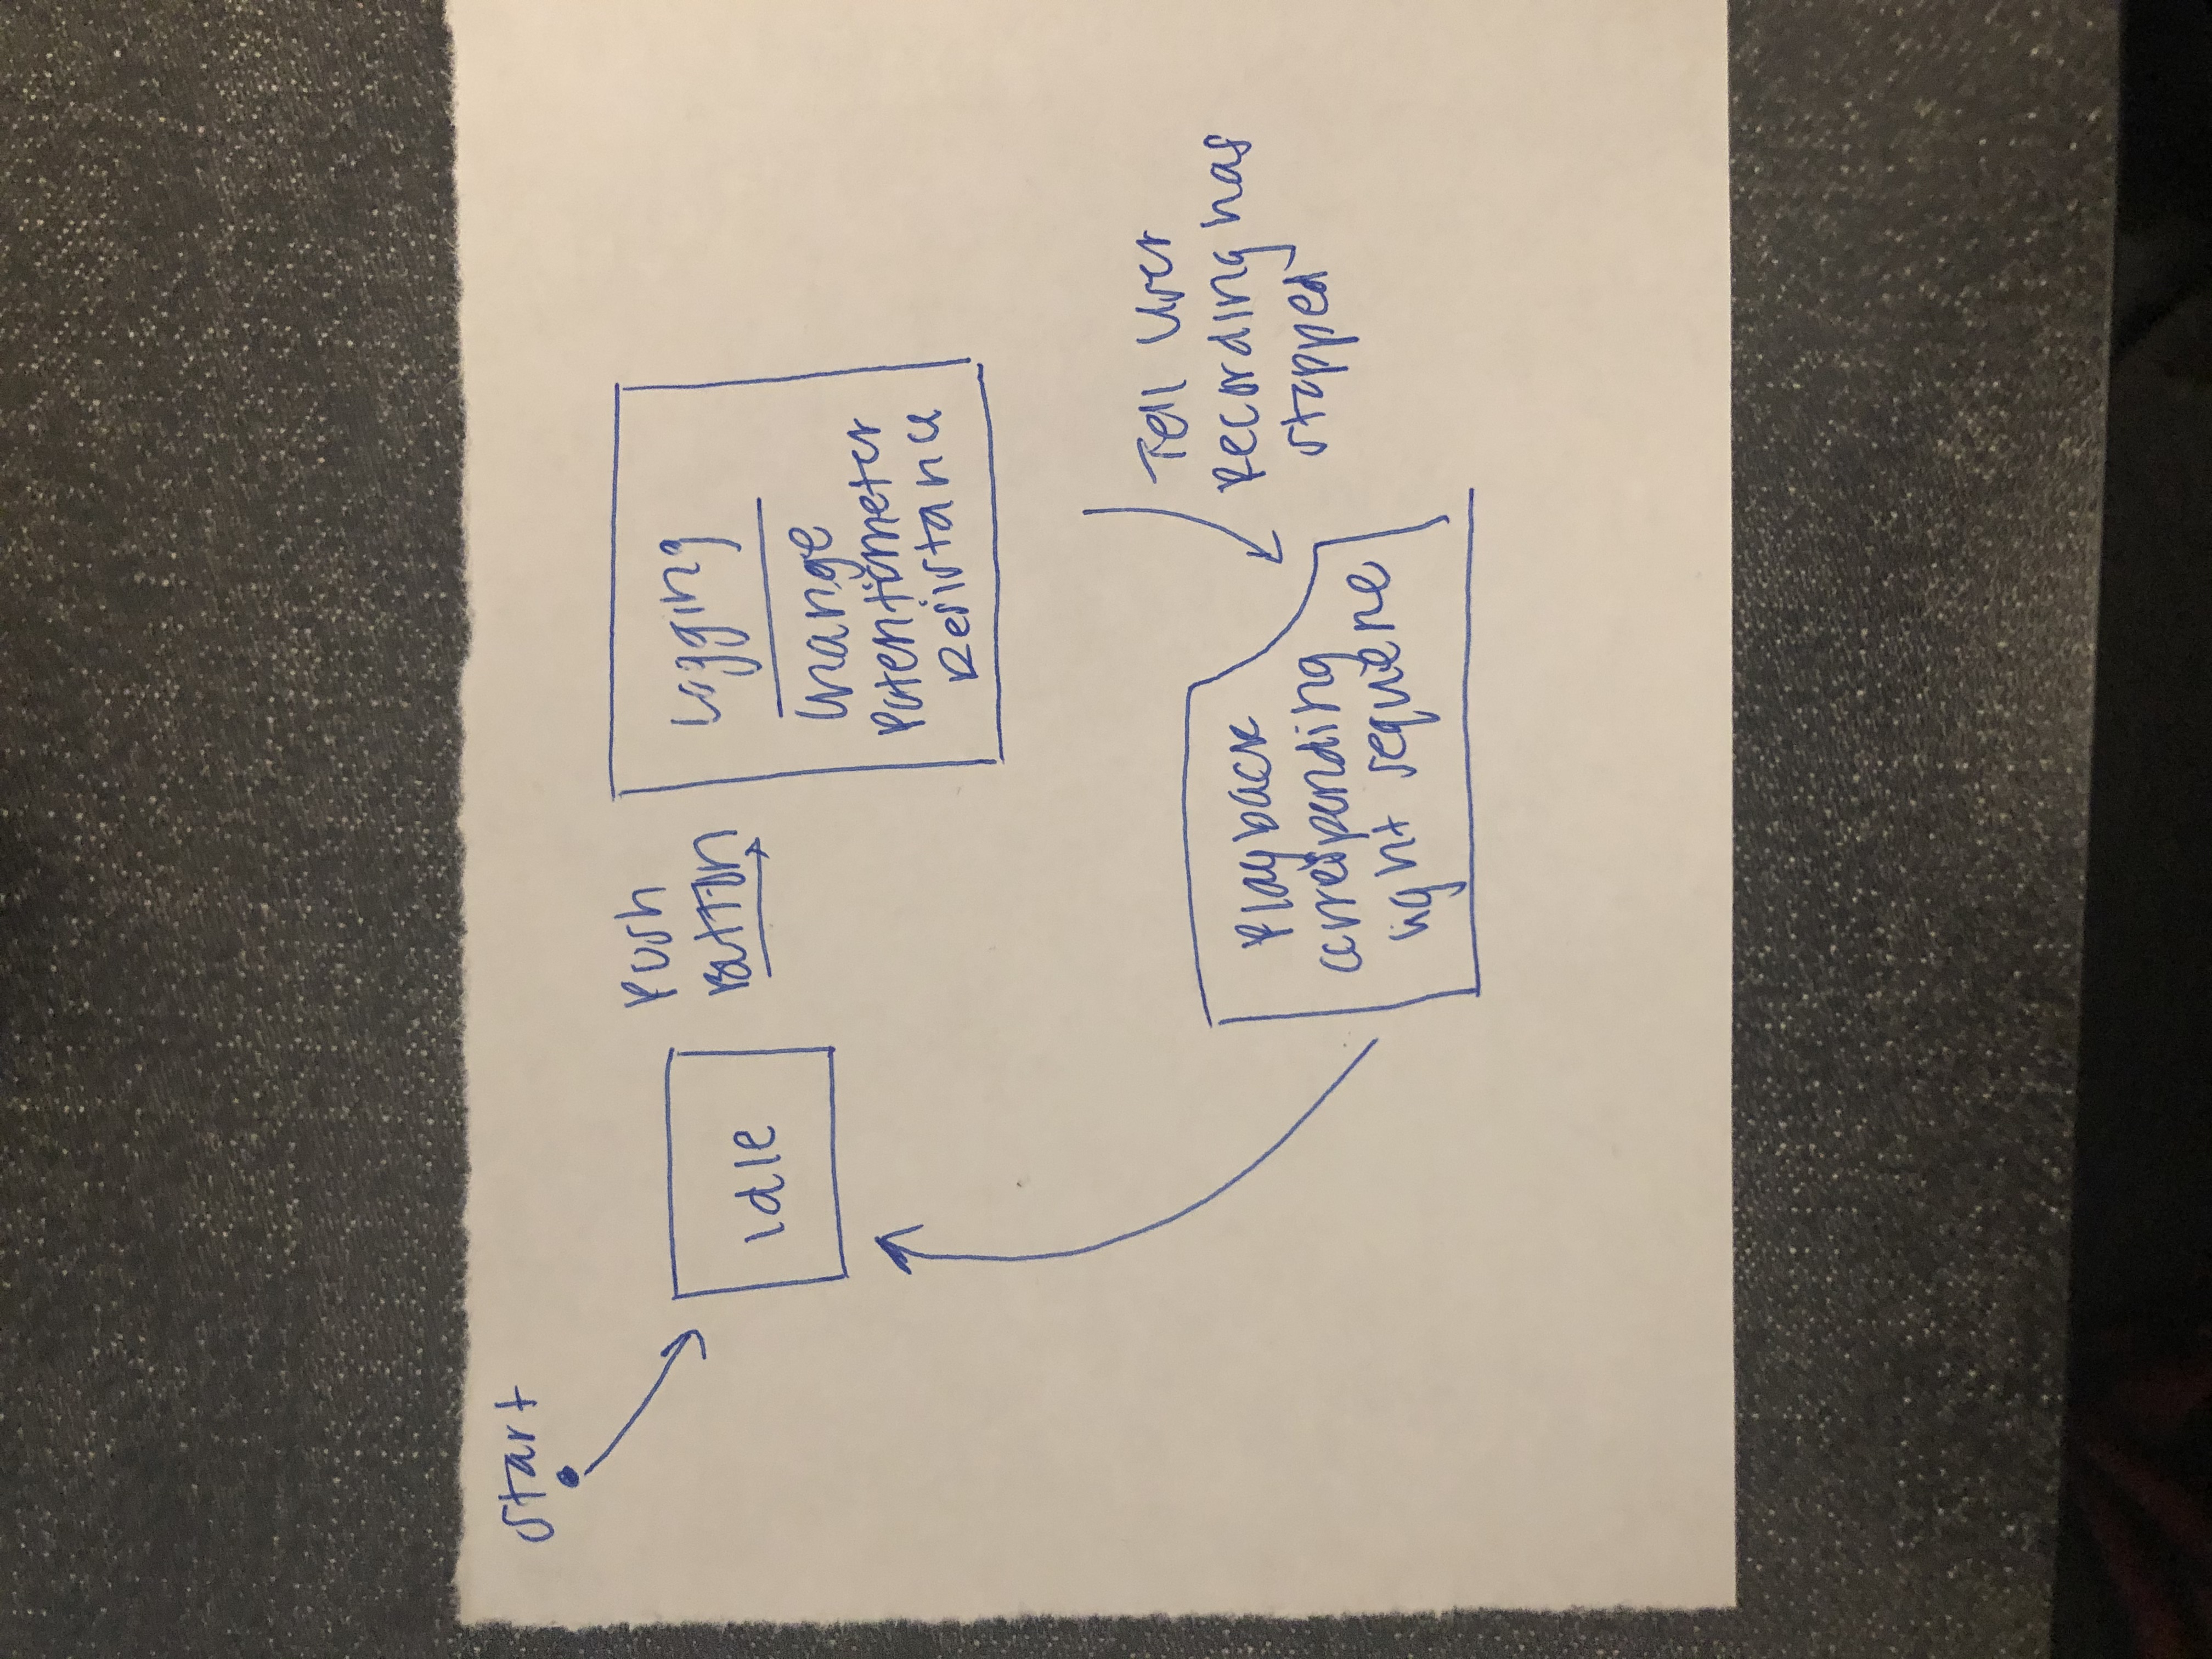 Start
Idle
Push
Button
Logging
Change
Potentiometer
Resistance
Tell User
Recording has
stopped
Playback
corresponding
light sequence